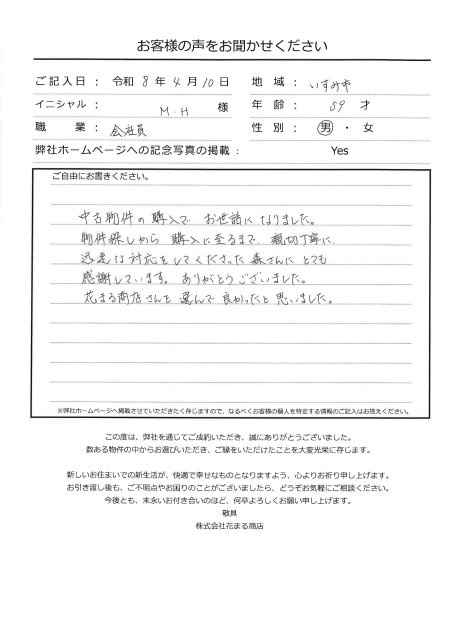 お客様の声をお聞かせください
ご記入日 : 令和 8 年 4 月 10 日
地域 : いすみ市
イニシャル : M.H 様
年齢 : 59 才
職業 : 会社員
性別 : 男 ・ 女
弊社ホームページへの記念写真の掲載 : Yes
ご自由にお書きください。
中古物件の購入で、お世話になりました。
物件探しから購入に至るまで、親切丁寧に、
迅速な対応をしてくださった森さんにとても
感謝しています。ありがとうございました。
花まる商店さんを選んで良かったと思いました。
※弊社ホームページへ掲載させていただきたく存じますので、なるべくお客様の個人を特定する情報のご記入はお控えください。
この度は、弊社を通じてご成約いただき、誠にありがとうございました。
数ある物件の中からお選びいただき、ご縁をいただけたことを大変光栄に存じます。
新しいお住まいでの新生活が、快適で幸せなものとなりますよう、心よりお祈り申し上げます。
お引き渡し後も、ご不明点やお困りのことがございましたら、どうぞお気軽にご相談ください。
今後とも、末永いお付き合いのほど、何卒よろしくお願い申し上げます。
敬具
株式会社花まる商店